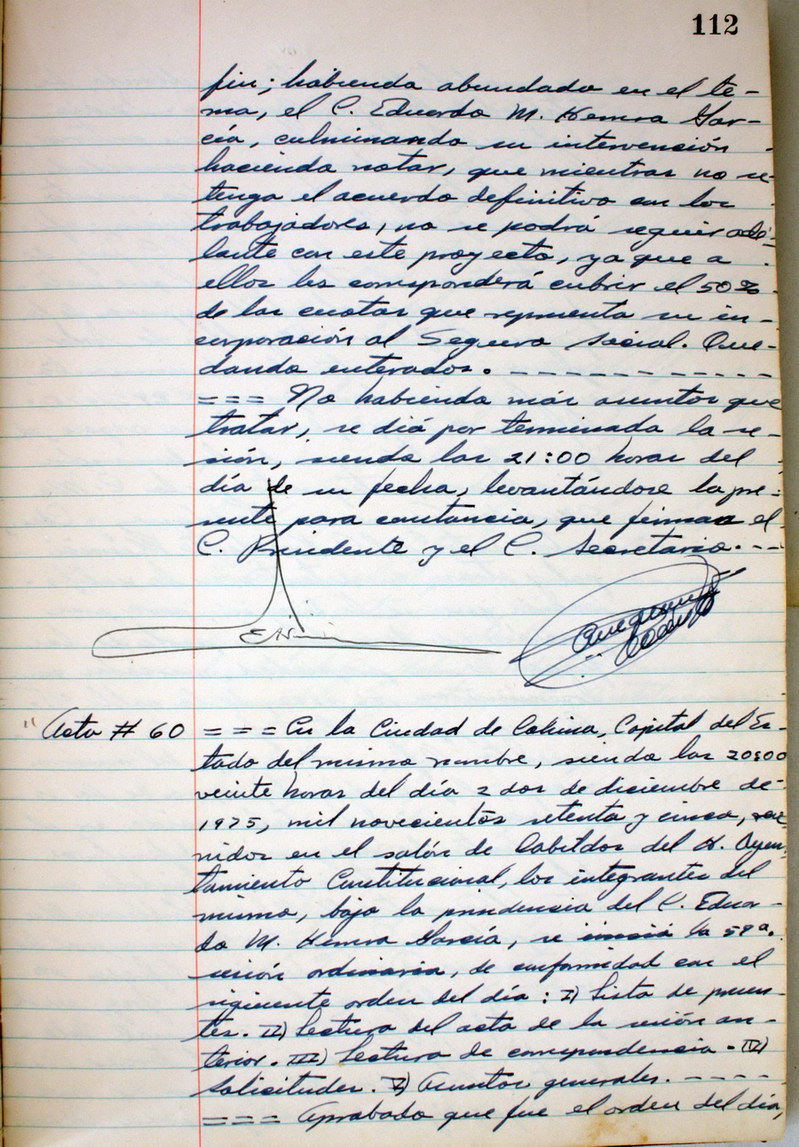 112
fin; habiendo abundado en el te-
ma, el C. Eduardo M. Herrera Gar-
cía, culminando su intervención
haciendo notar, que mientras no se
tenga el acuerdo definitivo con los
trabajadores, no se podrá seguir ade-
lante con este proyecto, ya que a
ellos les corresponderá cubrir el 50%
de las cuotas que representa su in-
corporación al Seguro Social. Que-
dando enterados. - - - - - - - - - - -
= = = No habiendo más asuntos que
tratar, se dió por terminada la se-
sión, siendo las 21:00 horas del
día de su fecha, levantándose la pre-
sente para constancia, que firman el
C. Presidente y el C. Secretario. - -
" Acta # 60 = = = En la Ciudad de Colima, Capital del Es-
tado del mismo nombre, siendo las 20:00
veinte horas del día 2 dos de diciembre de
1975, mil novecientos setenta y cinco, reu-
nidos en el salón de Cabildos del H. Ayun-
tamiento Constitucional, los integrantes del
mismo, bajo la presidencia del C. Eduar-
do M. Herrera García, se inició la 59a.
sesión ordinaria, de conformidad con el
siguiente orden del día: I) Lista de presen-
tes. II) Lectura del acta de la sesión an-
terior. III) Lectura de correspondencia. IV)
Solicitudes. V) Asuntos generales. - - - -
= = = Aprobado que fue el orden del día,